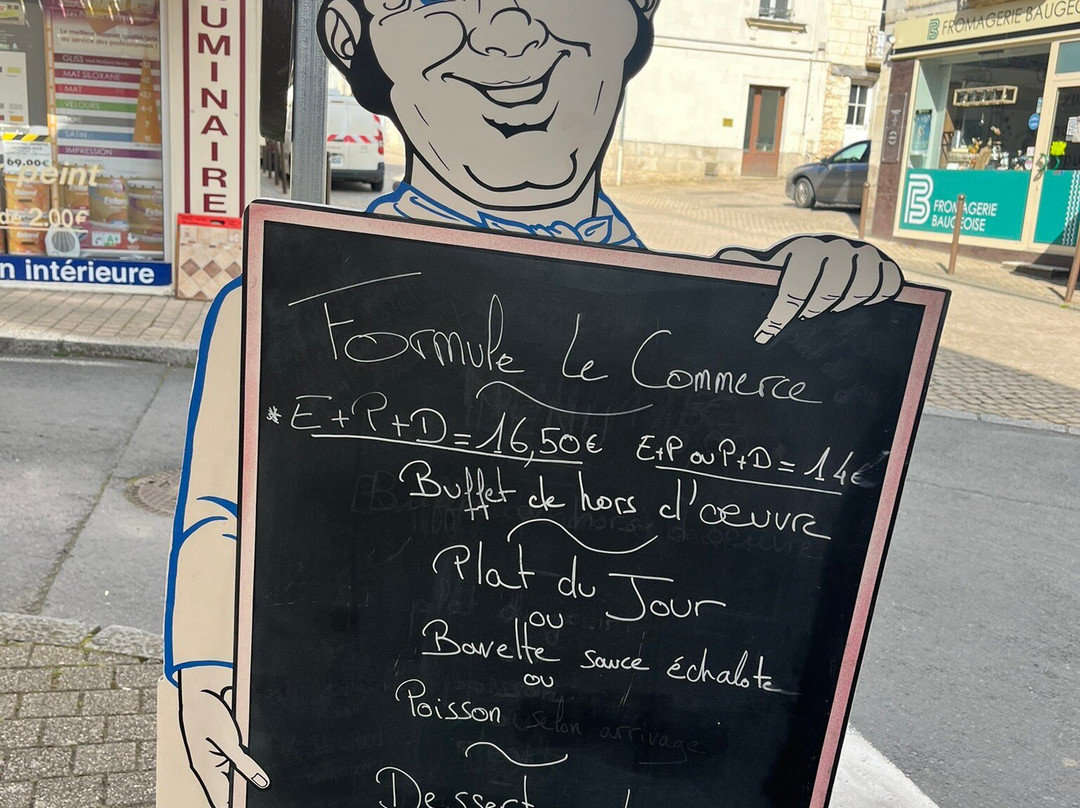 LUMINAIRE
Le meilleur
au service des professionnels
GLISS
MAT SILOXANE
MAT
VELOURS
SATIN
IMPRESSION
69.00€
peint
de 2.00€
n intérieure
FROMAGERIE BAUGEO
FROMAGERIE
BAUGEOISE
Formule Le Commerce
* E+P+D = 16,50€ E+P ou P+D = 14€
Buffet de hors d'œuvre
Plat du Jour
ou
Bavette sauce échalote
ou
Poisson selon arrivage
Dessert